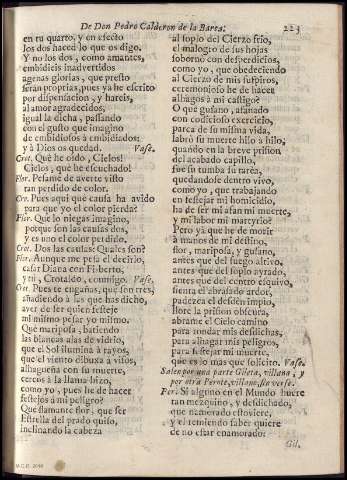 De Don Pedro Calderon de la Barca.
223
en tu quarto, y en efecto
los dos haced lo que os digo.
Y no los dos, como amantes,
embidieis inadvertidos
agenas glorias, que presto
seràn proprias, pues yà he escrito
por dispensacion, y hareis,
al amor agradecidos,
igual la dicha, passando
con el gusto que imagino
de embidiosos à embidiados:
y à Dios os quedad. Vase.
Cro. Què he oìdo, Cielos!
Cielos, què he escuchado!
Flor. Pesame de averte visto
tan perdido de color.
Cro. Pues aquì què causa ha avido
para que yo el color pierda?
Flor. Que lo niegas imagino,
porque son las causas dos,
y es uno el color perdido.
Cro. Dos las causas? Quales son?
Flor. Aunque me pesa el decirlo,
casar Diana con Fisberto,
y tù, Crotaldo, conmigo. Vase.
Cro. Pues te engañas, que son tres,
añadiendo à las que has dicho,
aver de ser quien festeje
mi mismo pesar yo mismo.
Què mariposa, batiendo
las blancas alas de vidrio,
que el Sol ilumina à rayos,
que el viento dibuxa à visos,
alhagueña con su muerte,
cercos à la llama hizo,
como yo, pues he de hacer
festejos à mi peligro?
Què flamante flor, que sèr
Estrella del prado quiso,
inclinando la cabeza
al soplo del Cierzo frio,
el malogro de sus hojas
sobornò con desperdicios,
como yo, que obedeciendo
al Cierzo de mis suspiros,
ceremonioso he de hacer
alhagos à mi castigo?
O què gusano, afanado
con codicioso exercicio,
parca de su misma vida,
labrò su muerte hilo à hilo,
quando en la breve prision
del acabado capillo,
fue su tumba su tarèa,
quedandose dentro vivo,
como yo, que trabajando
en festejar mi homicidio,
ha de ser mi afan mi muerte,
y mi labor mi martyrio?
Pero yà que he de morir
à manos de mi destino,
flor, mariposa, y gusano,
antes que del fuego altivo,
antes que del soplo ayrado,
antes que del centro esquivo,
sienta el abrasado ardor,
padezca el desdèn impio,
llore la prision obscura,
abrame el Cielo camino
para rondar mis desdichas,
para alhagar mis peligros,
para festejar mi muerte,
que es lo mas que solicito. Vase.
Salen por una parte Gileta, villana; y
por otra Perote, villano, sin verse.
Per. Si alguno en el Mundo huere
tan mezquino, y desdichado,
que namorado estoviere,
y el remiendo saber quiere
de no estar enamorado:
Gil.